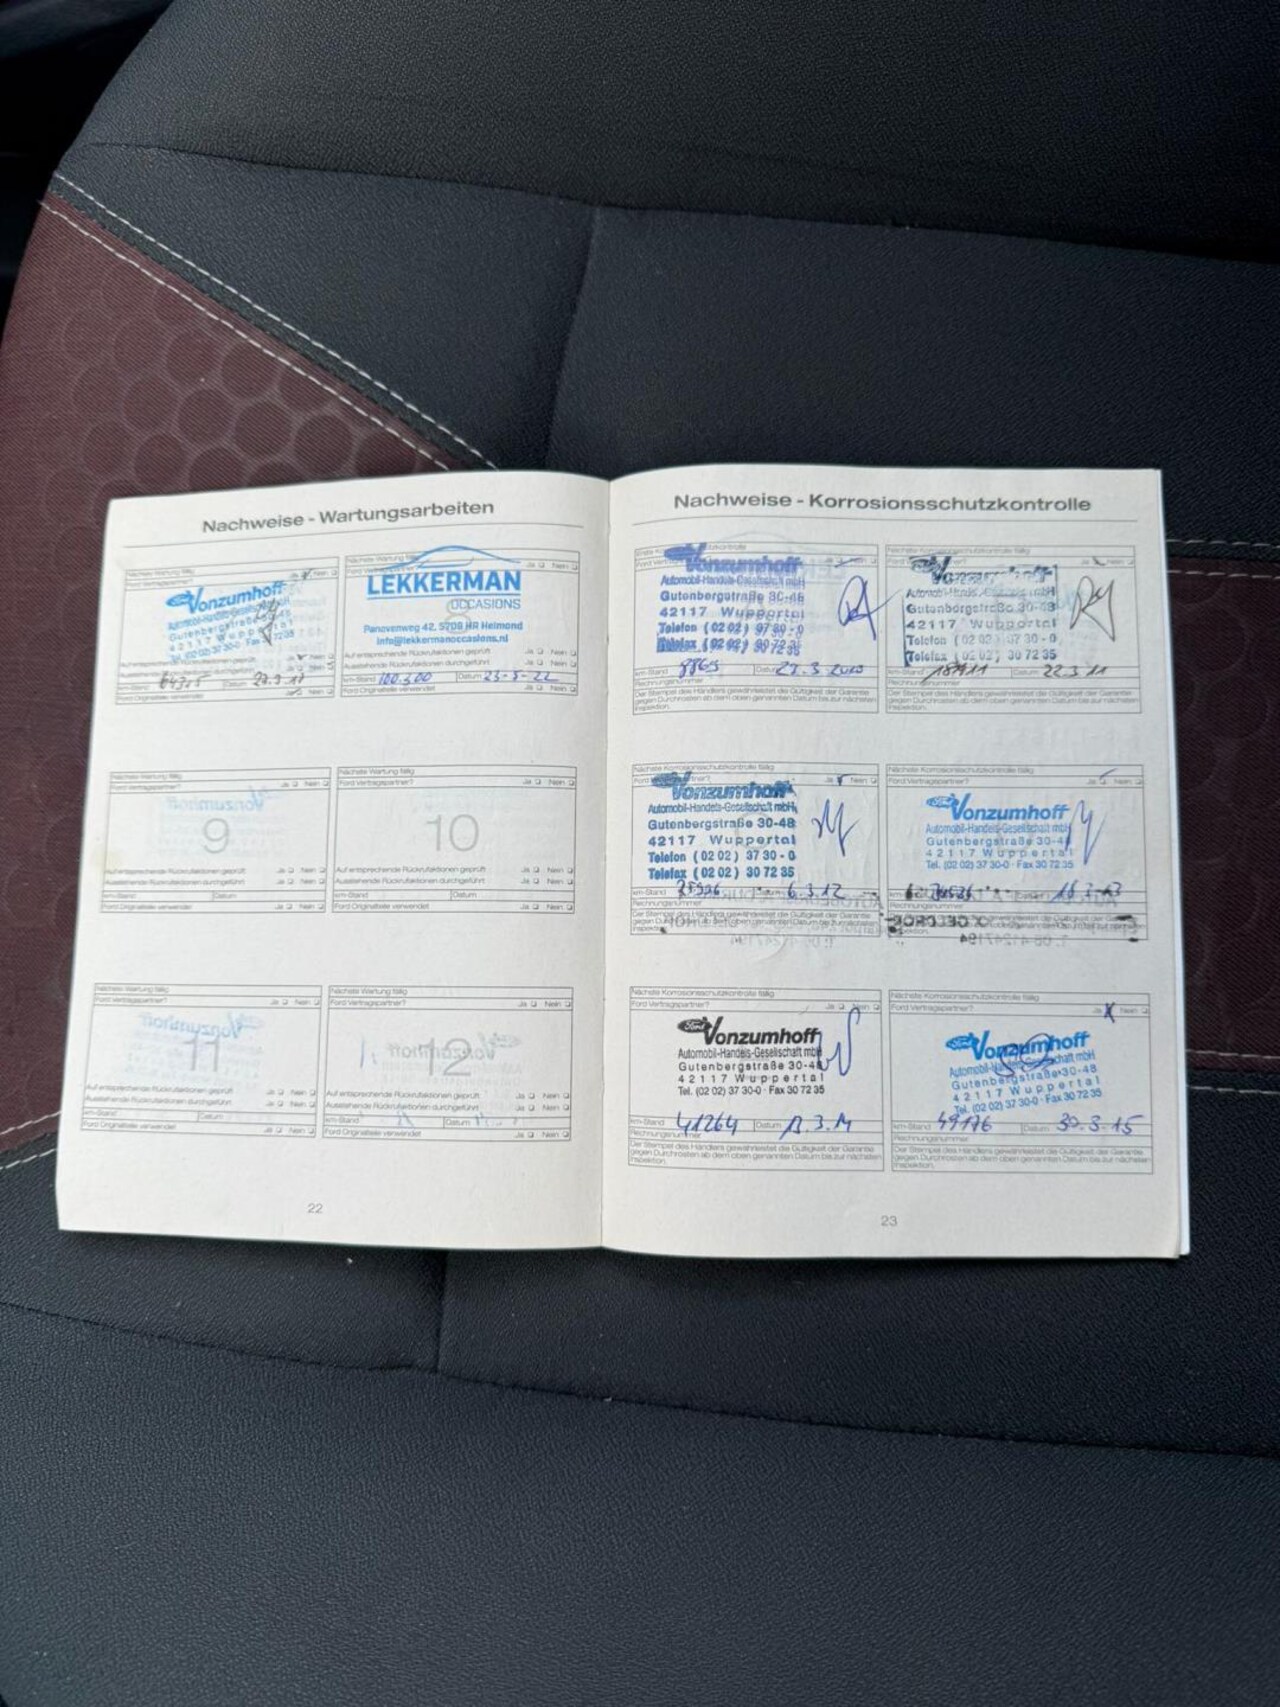 Nachweise - Wartungsarbeiten
Nächste Wartung fällig
Ford Vertragspartner? Ja Nein
Vonzumhoff
Automobil-Handels-Gesellschaft mbH
Gutenbergstraße 30-48
42117 Wuppertal
Tel. (02 02) 37 30-0 · Fax 30 72 35
Auf entsprechende Rückrufaktionen geprüft Ja Nein
Ausstehende Rückrufaktionen durchgeführt Ja Nein
km-Stand 64315 Datum 27.3.17
Ford Originalteile verwendet Ja Nein
Nächste Wartung fällig
Ford Vertragspartner? Ja Nein
LEKKERMAN
OCCASIONS
8
Panovenweg 42, 5708 HR Helmond
info@lekkermanoccasions.nl
Auf entsprechende Rückrufaktionen geprüft Ja Nein
Ausstehende Rückrufaktionen durchgeführt Ja Nein
km-Stand 100.300 Datum 23-5-22
Ford Originalteile verwendet Ja Nein
Nächste Wartung fällig
Ford Vertragspartner? Ja Nein
9
Auf entsprechende Rückrufaktionen geprüft Ja Nein
Ausstehende Rückrufaktionen durchgeführt Ja Nein
km-Stand Datum
Ford Originalteile verwendet Ja Nein
Nächste Wartung fällig
Ford Vertragspartner? Ja Nein
10
Auf entsprechende Rückrufaktionen geprüft Ja Nein
Ausstehende Rückrufaktionen durchgeführt Ja Nein
km-Stand Datum
Ford Originalteile verwendet Ja Nein
Nächste Wartung fällig
Ford Vertragspartner? Ja Nein
11
Auf entsprechende Rückrufaktionen geprüft Ja Nein
Ausstehende Rückrufaktionen durchgeführt Ja Nein
km-Stand Datum
Ford Originalteile verwendet Ja Nein
Nächste Wartung fällig
Ford Vertragspartner? Ja Nein
12
Auf entsprechende Rückrufaktionen geprüft Ja Nein
Ausstehende Rückrufaktionen durchgeführt Ja Nein
km-Stand Datum
Ford Originalteile verwendet Ja Nein
22
Nachweise - Korrosionsschutzkontrolle
Vonzumhoff
Automobil-Handels-Gesellschaft mbH
Gutenbergstraße 30-48
42117 Wuppertal
Telefon (02 02) 37 30-0
Telefax (02 02) 30 72 35
km-Stand 8869 Datum 29.3.2010
Rechnungsnummer
Der Stempel des Händlers gewährleistet die Gültigkeit der Garantie
gegen Durchrosten ab dem oben genannten Datum bis zur nächsten
Inspektion.
Nächste Korrosionsschutzkontrolle fällig
Vonzumhoff
Automobil-Handels-Gesellschaft mbH
Gutenbergstraße 30-48
42117 Wuppertal
Telefon (02 02) 37 30-0
Telefax (02 02) 30 72 35
km-Stand 18911 Datum 22.3.11
Rechnungsnummer
Der Stempel des Händlers gewährleistet die Gültigkeit der Garantie
gegen Durchrosten ab dem oben genannten Datum bis zur nächsten
Inspektion.
Nächste Korrosionsschutzkontrolle fällig
Vonzumhoff
Automobil-Handels-Gesellschaft mbH
Gutenbergstraße 30-48
42117 Wuppertal
Telefon (02 02) 37 30-0
Telefax (02 02) 30 72 35
km-Stand 6.3.12
Rechnungsnummer
Der Stempel des Händlers gewährleistet die Gültigkeit der Garantie
Nächste Korrosionsschutzkontrolle fällig
Ford Vertragspartner? Ja Nein
Vonzumhoff
Automobil-Handels-Gesellschaft mbH
Gutenbergstraße 30-48
42117 Wuppertal
Tel. (02 02) 37 30-0 · Fax 30 72 35
Rechnungsnummer
Nächste Korrosionsschutzkontrolle fällig
Ford Vertragspartner? Ja Nein
Ford Vonzumhoff
Automobil-Handels-Gesellschaft mbH
Gutenbergstraße 30-48
42117 Wuppertal
Tel. (02 02) 37 30-0 · Fax 30 72 35
km-Stand 41264 Datum 13.3.14
Rechnungsnummer
Der Stempel des Händlers gewährleistet die Gültigkeit der Garantie
gegen Durchrosten ab dem oben genannten Datum bis zur nächsten
Inspektion.
Nächste Korrosionsschutzkontrolle fällig
Ford Vertragspartner? Ja Nein
Vonzumhoff
Automobil-Handels-Gesellschaft mbH
Gutenbergstraße 30-48
42117 Wuppertal
Tel. (02 02) 37 30-0 · Fax 30 72 35
km-Stand 49176 Datum 30.3.15
Rechnungsnummer
Der Stempel des Händlers gewährleistet die Gültigkeit der Garantie
gegen Durchrosten ab dem oben genannten Datum bis zur nächsten
Inspektion.
23